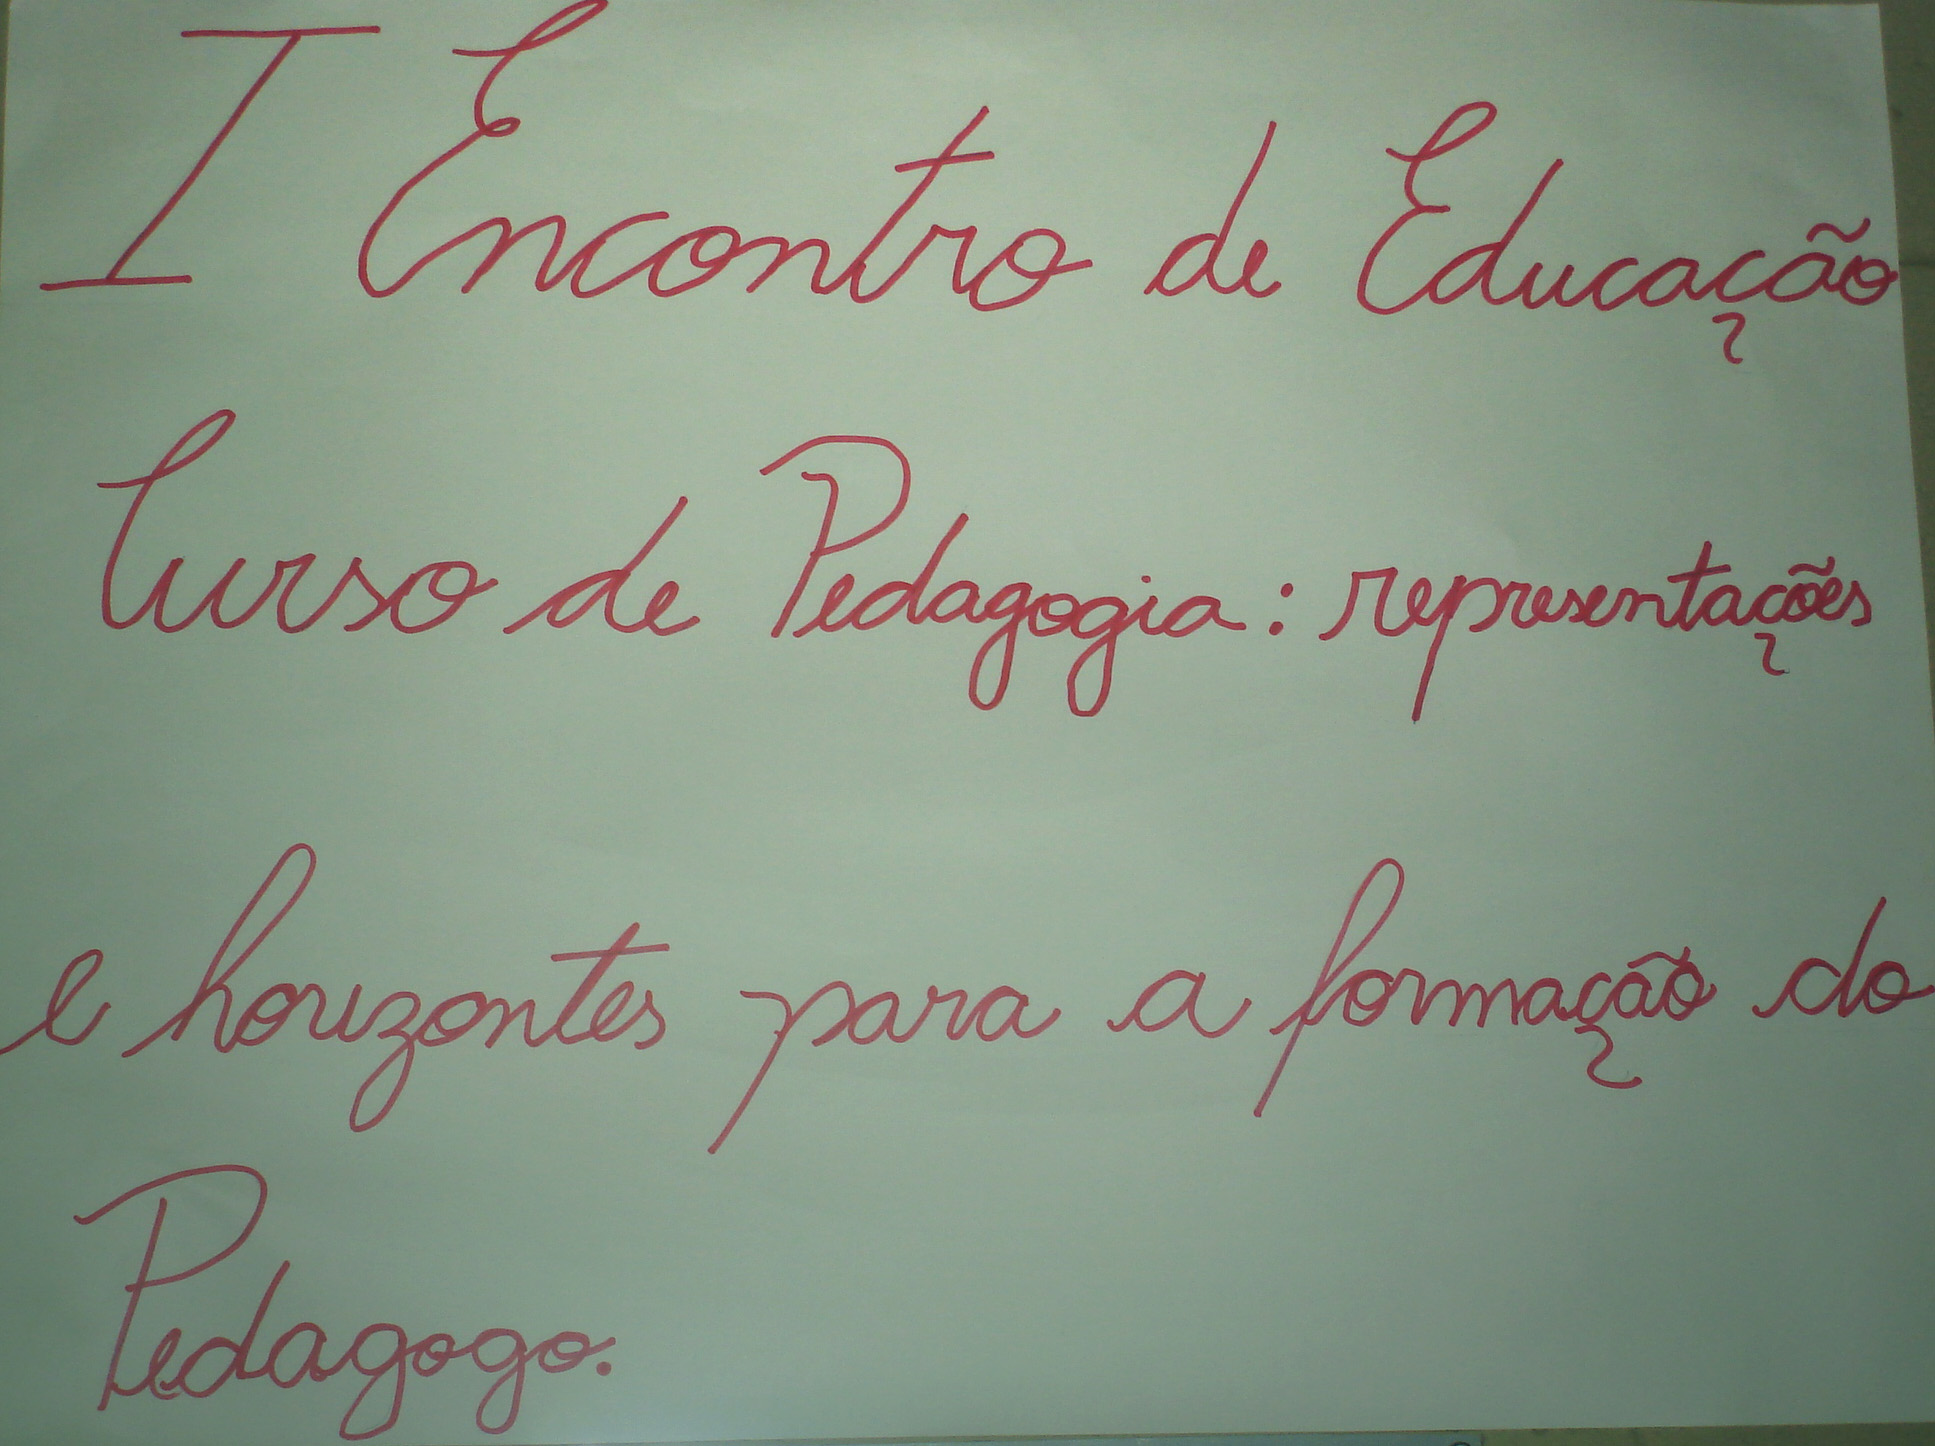 I Encontro de Educação
Curso de Pedagogia: representações
e horizontes para a formação do
Pedagogo.